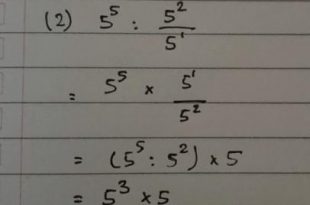 (2) 5⁵ : 5²/5¹
= 5⁵ × 5¹/5²
= (5⁵ : 5²) × 5
= 5³ × 5